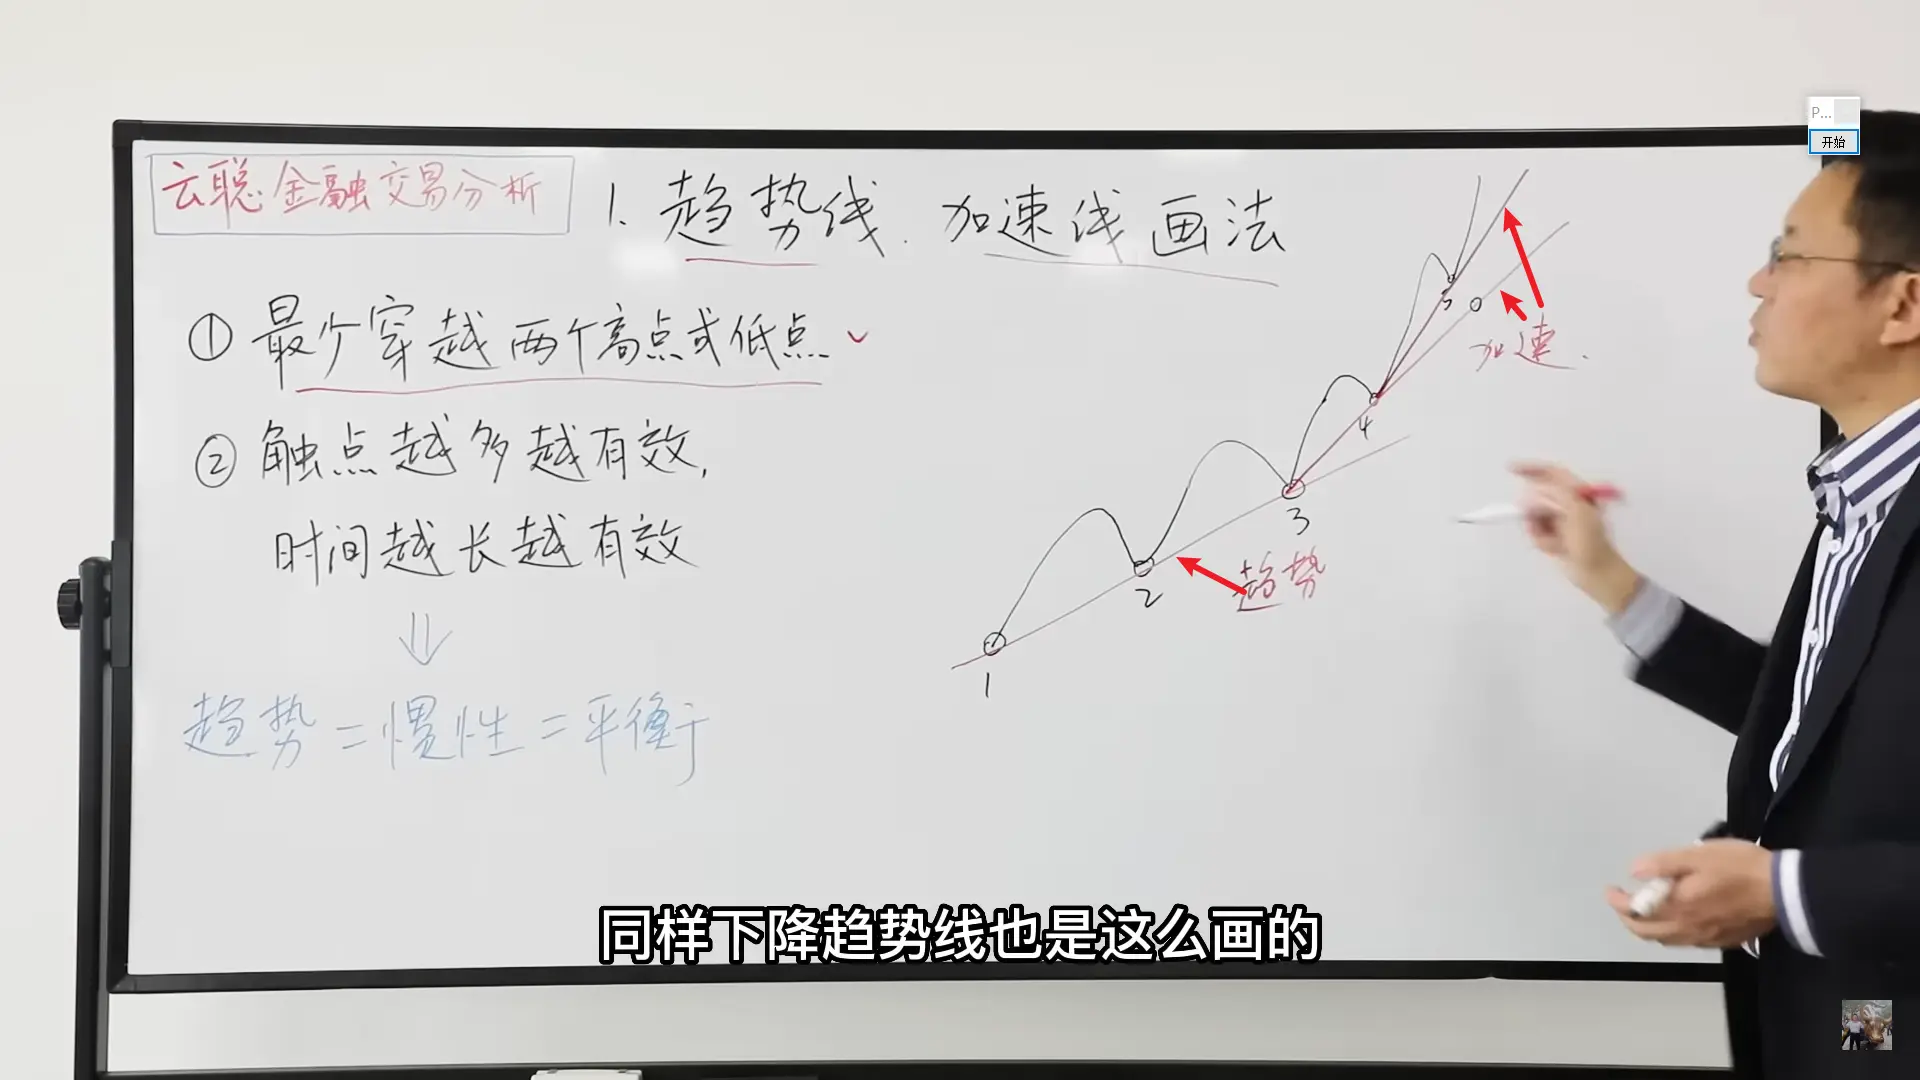 云聪金融交易分析
1. 趋势线.加速线画法
① 最少穿越两个高点或低点
② 触点越多越有效,
时间越长越有效
趋势=惯性=平衡
1
2
3
4
5
趋势
加速.
P...
开始
同样下降趋势线也是这么画的